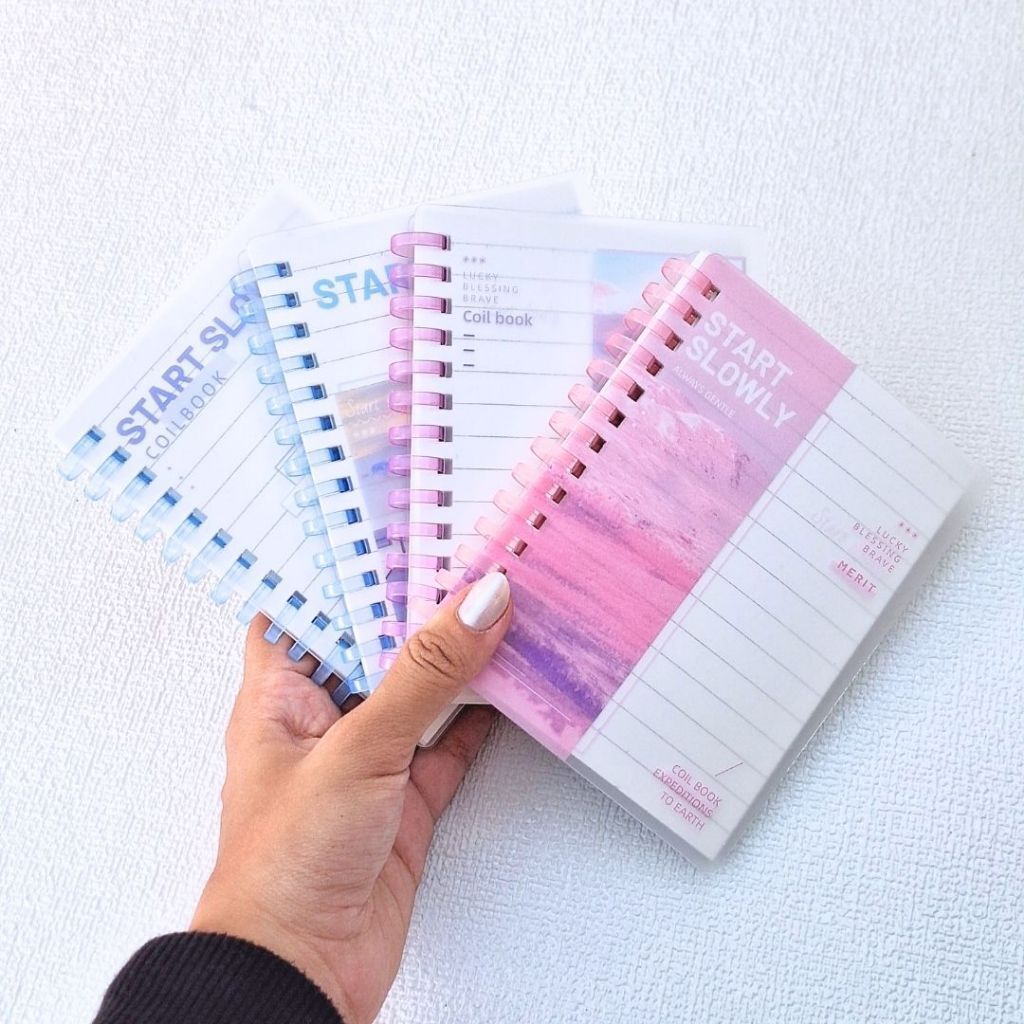 START SLO
COILBOOK
STAR
Start
***
LUCKY
BLESSING
BRAVE
Coil book
START
SLOWLY
ALWAYS GENTLE
***
LUCKY
BLESSING
BRAVE
MERIT
COIL BOOK
EXPEDITIONS
TO EARTH